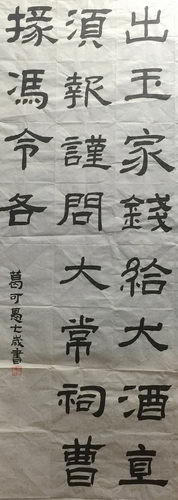 出玉家錢給大酒直
須報謹問大常祠曹
掾馮令各
葛可愚七歲書